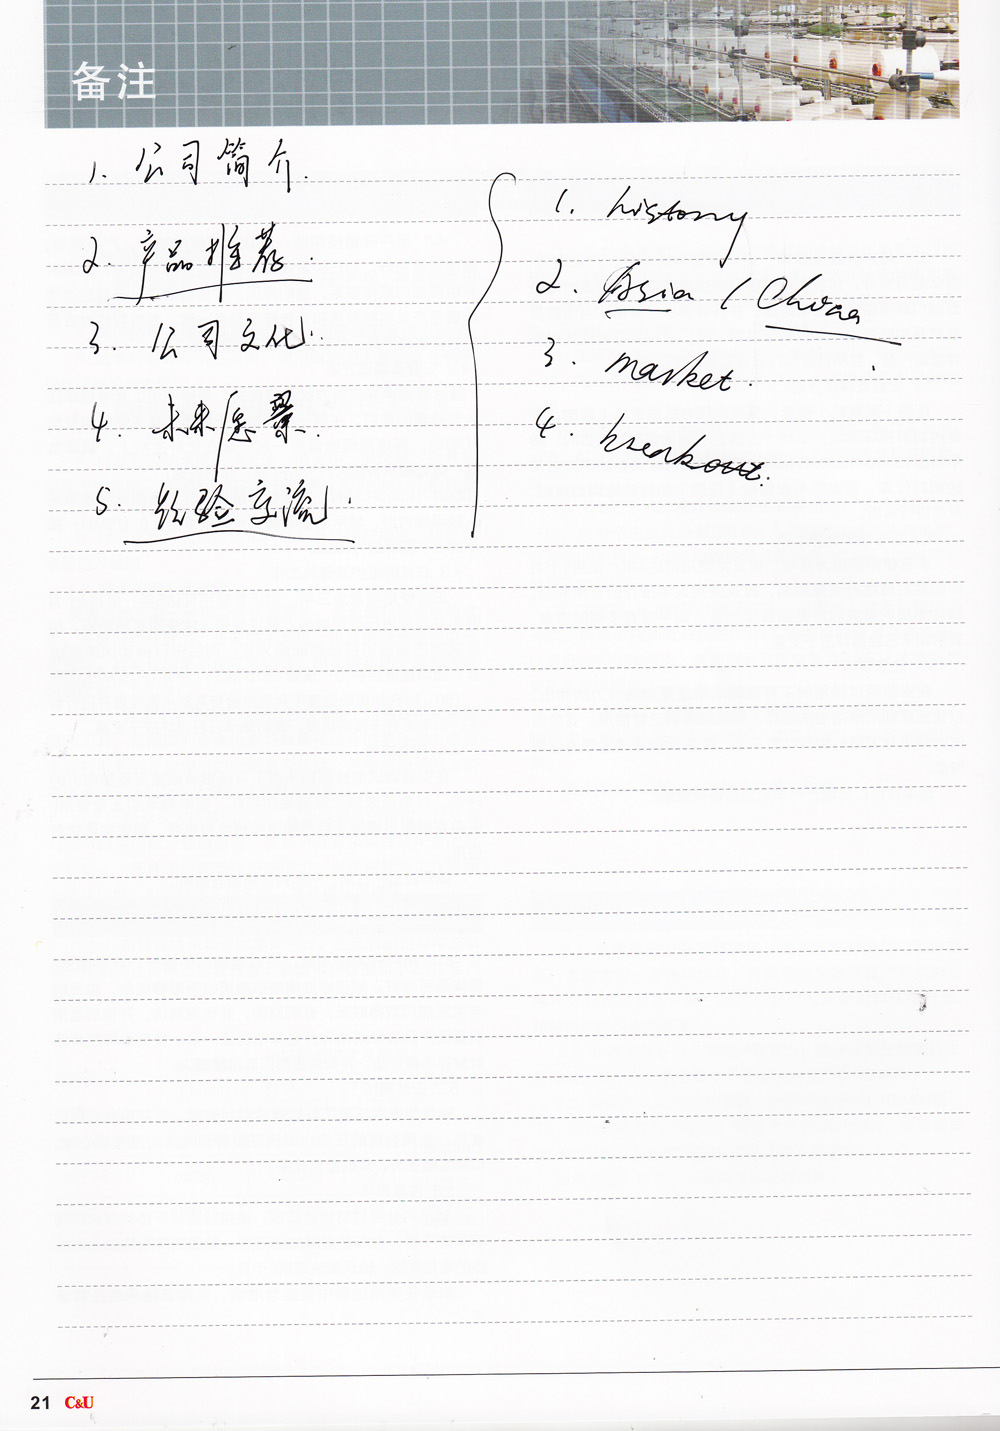 备注
1. 公司简介.
2. 产品推荐.
3. 公司文化.
4. 未来愿景.
5. 经验交流.
1. history
2. Asia / China
3. market.
4. breakout.
21 C&U